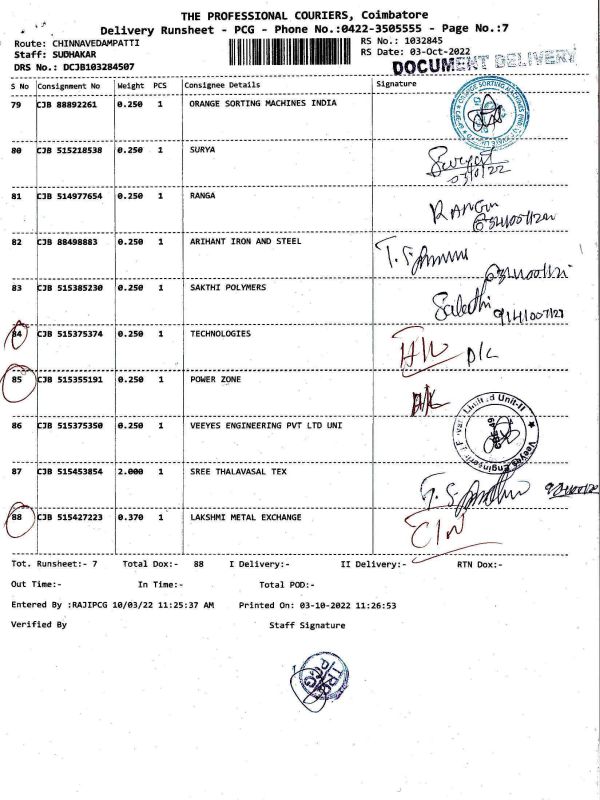 THE PROFESSIONAL COURIERS, Coimbatore
Delivery Runsheet - PCG - Phone No.:0422-3505555 - Page No.:7
Route: CHINNAVEDAMPATTI RS No.: 1032845
Staff: SUDHAKAR RS Date: 03-Oct-2022
DRS No.: DCJB103284507 DOCUMENT DELIVERY
S No Consignment No Weight PCS Consignee Details Signature
79 CJB 88892261 0.250 1 ORANGE SORTING MACHINES INDIA
80 CJB 515218538 0.250 1 SURYA
81 CJB 514977654 0.250 1 RANGA
82 CJB 88498883 0.250 1 ARIHANT IRON AND STEEL
83 CJB 515385230 0.250 1 SAKTHI POLYMERS
84 CJB 515375374 0.250 1 TECHNOLOGIES
D/L
85 CJB 515355191 0.250 1 POWER ZONE
86 CJB 515375350 0.250 1 VEEYES ENGINEERING PVT LTD UNI
87 CJB 515453854 2.000 1 SREE THALAVASAL TEX
88 CJB 515427223 0.370 1 LAKSHMI METAL EXCHANGE
Tot. Runsheet:- 7 Total Dox:- 88 I Delivery:- II Delivery:- RTN Dox:-
Out Time:- In Time:- Total POD:-
Entered By :RAJIPCG 10/03/22 11:25:37 AM Printed On: 03-10-2022 11:26:53
Verified By Staff Signature